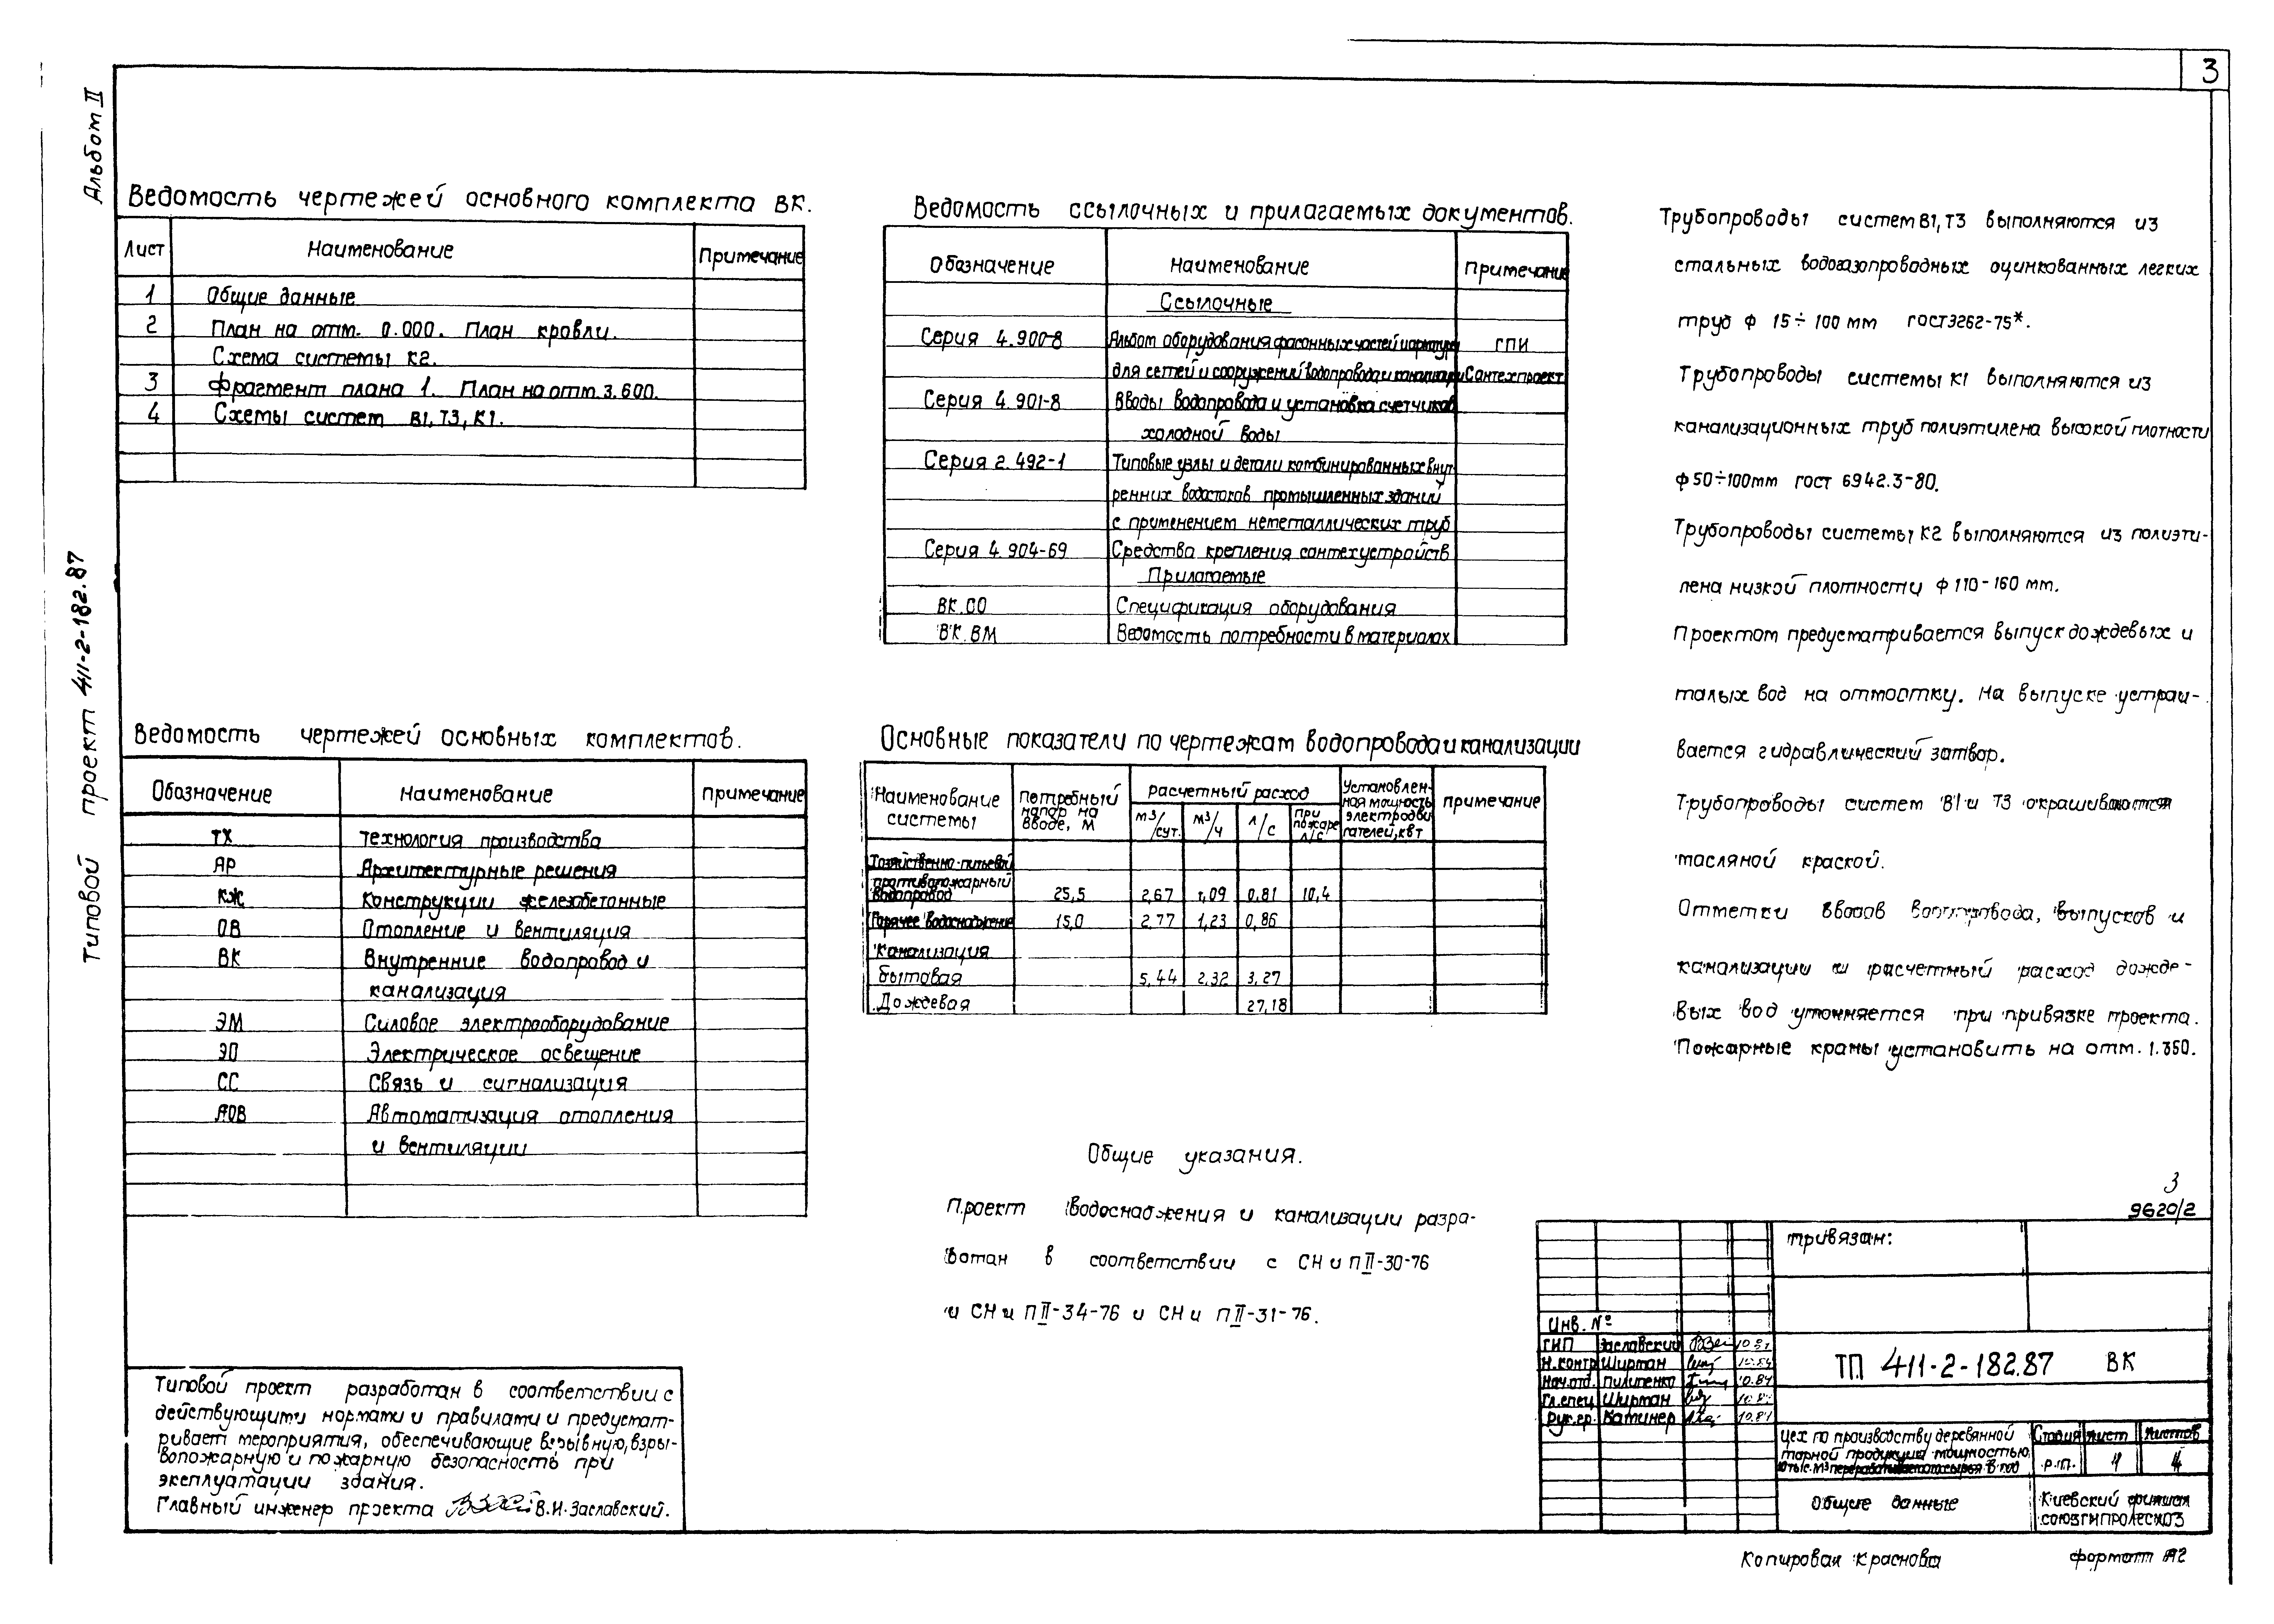 3
Альбом II
Типовой проект 411-2-182.87
Ведомость чертежей основного комплекта ВК.
Лист Наименование Примечание
1 Общие данные
2 План на отм. 0.000. План кровли.
Схема системы К2.
3 Фрагмент плана 1. План на отм. 3.600.
4 Схемы систем В1, Т3, К1.
Ведомость чертежей основных комплектов.
Обозначение Наименование примечание
ТХ Технология производства
АР Архитектурные решения
КЖ Конструкции железобетонные
ОВ Отопление и вентиляция
ВК Внутренние водопровод и
канализация
ЭМ Силовое электрооборудование
ЭО Электрическое освещение
СС Связь и сигнализация
АОВ Автоматизация отопления
и вентиляции
Типовой проект разработан в соответствии с
действующими нормами и правилами и предусмат-
ривает мероприятия, обеспечивающие взрывную, взры-
вопожарную и пожарную безопасность при
эксплуатации здания.
Главный инженер проекта В.И. Заславский.
Ведомость ссылочных и прилагаемых документов.
Обозначение Наименование Примечание
Ссылочные
Серия 4.900-8 Альбом оборудования фасонных частей и арматуры ГПИ
для сетей и сооружений водопровода и канализации Сантехпроект
Серия 4.901-8 Вводы водопровода и установка счетчиков
холодной воды
Серия 2.492-1 Типовые узлы и детали комбинированных внут-
ренних водостоков промышленных зданий
с применением неметаллических труб
Серия 4.904-69 Средства крепления сантехустройств
Прилагаемые
ВК.СО Спецификация оборудования
ВК.ВМ Ведомость потребности в материалах
Основные показатели по чертежам водопровода и канализации
Наименование системы Потребный напор на вводе, м Расчетный расход Установлен-ная мощность электродви-гателей, квт примечание
м3/сут. м3/ч л/с при пожаре л/с
Хозяйственно-питьевой
противопожарный
водопровод 25,5 2,67 1,09 0,81 10,4
Горячее водоснабжение 15,0 2,77 1,23 0,86
Канализация
бытовая 5,44 2,32 3,27
Дождевая 27,18
Общие указания.
Проект водоснабжения и канализации разра-
ботан в соответствии с СНиП II-30-76
и СНиП II-34-76 и СНиП II-31-76.
Трубопроводы систем В1, Т3 выполняются из
стальных водогазопроводных оцинкованных легких
труб ф 15÷100 мм гост 3262-75*.
Трубопроводы системы К1 выполняются из
канализационных труб полиэтилена высокой плотности
ф 50÷100мм гост 6942.3-80.
Трубопроводы системы К2 выполняются из полиэти-
лена низкой плотности ф 110-160 мм.
Проектом предусматривается выпуск дождевых и
талых вод на отмостку. На выпуске устраи-
вается гидравлический затвор.
Трубопроводы систем В1 и Т3 окрашиваются
масляной краской.
Отметки вводов водопровода, выпусков и
канализации и расчетный расход дожде-
вых вод уточняется при привязке проекта.
Пожарные краны установить на отм. 1.350.
3
9620/2
привязан:
Инв. №
ГИП Заславский
Н.контр Ширман
Нач.отд. Пилипенко 10.84
Гл.спец Ширман
Рук.гр. Каминер 10.84
ТП 411-2-182.87 ВК
Цех по производству деревянной
тарной продукции мощностью
10 тыс. м3 перерабатываемого сырья в год
Стадия Лист Листов
Р.П. 1 4
Общие данные
Киевский филиал
союзгипролесхоз
Копировал Краснова
формат А2